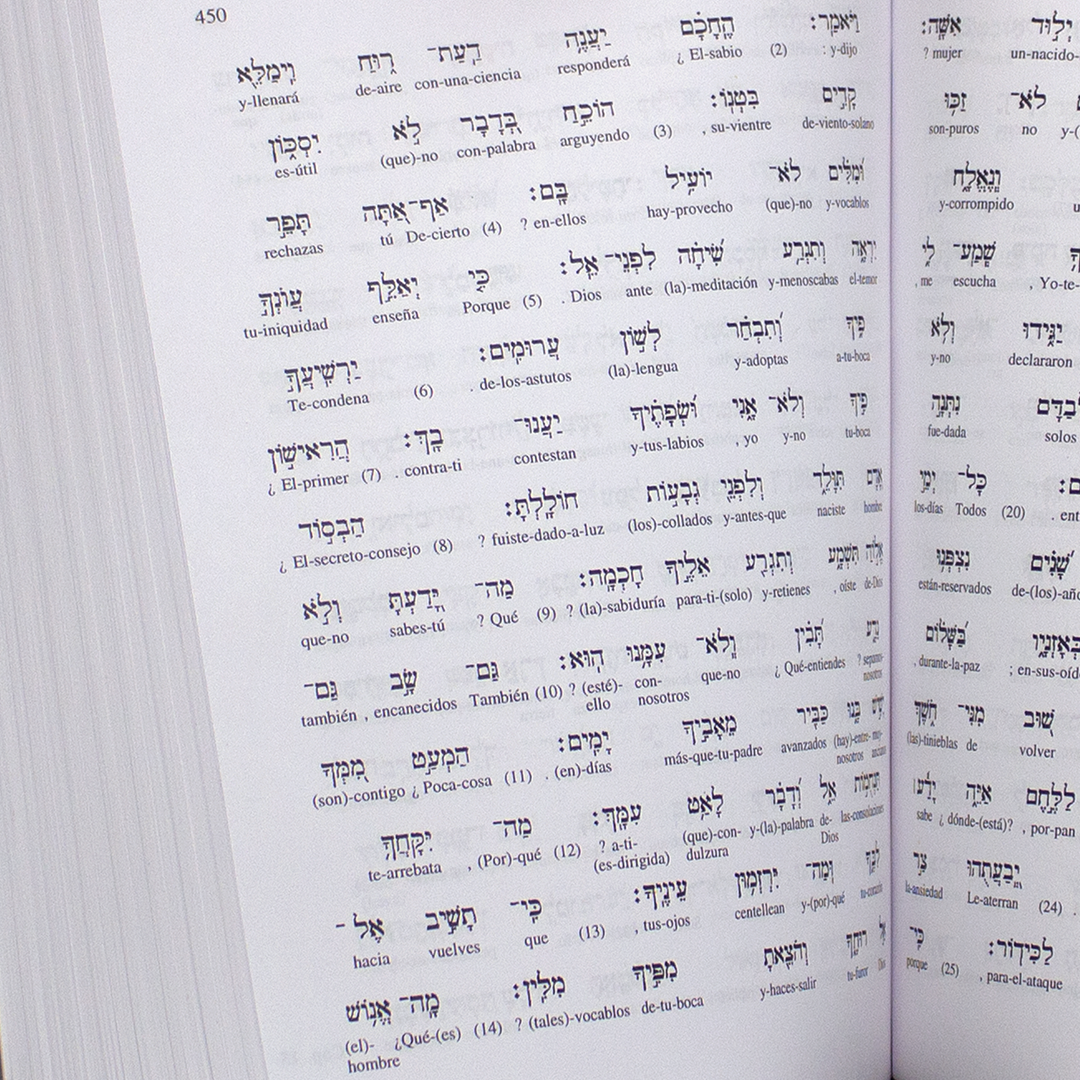 450
אִשָּׁה׃ יְלוּד
un-nacido- mujer ?
לֹא־ זַכּוּ
no son-puros
וְנֶאֱלָח
y-corrompido
שְׁמַע־ לִי
Yo-te- , escucha me ,
יַגִּידוּ וְלֹא
declararon y-no
נִתְּנָה
solos fue-dada
כָּל־ יְמֵי
(20) Todos los-días
שָׁנִים נִצְפְּנוּ
están-reservados
בְּאָזְנָיו בַּשָּׁלוֹם
; durante-la-paz ,
שׁוּב מִנִּי־ חֹשֶׁךְ
volver de (las)-tinieblas
לַלֶּחֶם אַיֵּה יָדַע
, por-pan ¿ dónde-(está)? sabe
יְבַעֲתֻהוּ צַר
(24) Le-aterran la-ansiedad
לַכִּידוֹר׃ כִּי־
para-el-ataque . (25) porque
וַיֹּאמַר׃ הֶחָכָם יַעֲנֶה דַעַת־ רוּחַ וִימַלֵּא
y-dijo : (2) ¿ El-sabio responderá con-una-ciencia de-aire y-llenará
קָדִים בִּטְנוֹ׃ הוֹכֵחַ בְּדָבָר לֹא יִסְכּוֹן
de-viento-solano su-vientre , (3) arguyendo con-palabra (que)-no es-útil
וּמִלִּים לֹא־ יוֹעִיל בָּם׃ אַף־אַתָּה תָּפֵר
y-vocablos (que)-no hay-provecho en-ellos ? (4) De-cierto tú rechazas
יִרְאָה וְתִגְרַע שִׂיחָה לִפְנֵי־אֵל׃ כִּי יְאַלֵּף עֲוֹנְךָ
el-temor y-menoscabas (la)-meditación ante Dios . (5) Porque enseña tu-iniquidad
פִיךָ וְתִבְחַר לְשׁוֹן עֲרוּמִים׃ יַרְשִׁיעֲךָ
a-tu-boca y-adoptas (la)-lengua de-los-astutos . (6) Te-condena
פִיךָ וְלֹא־ אָנִי וּשְׂפָתֶיךָ יַעֲנוּ־ בָךְ׃ הֲרִאישׁוֹן
tu-boca y-no yo , y-tus-labios contestan contra-ti . (7) ¿ El-primer
אָדָם תִּוָּלֵד וְלִפְנֵי גְבָעוֹת חוֹלָלְתָּ׃ הַבְסוֹד
hombre naciste y-antes-que (los)-collados fuiste-dado-a-luz ? (8) ¿ El-secreto-consejo
אֱלוֹהַּ תִּשְׁמָע וְתִגְרַע אֵלֶיךָ חָכְמָה׃ מַה־ יָּדַעְתָּ וְלֹא
de-Dios oíste , y-retienes para-ti-(solo) (la)-sabiduría ? (9) Qué ? sabes-tú que-no
נֵדָע תָּבִין וְלֹא־ עִמָּנוּ הוּא׃ גַּם־ שָׂב גַּם־
¿ Qué-entiendes que-no con-nosotros (esté)-ello ? (10) También encanecidos , también
בָּנוּ כַּבִּיר מֵאָבִיךָ יָמִים׃ הַמְעַט מִמְּךָ
(hay)-entre-nosotros avanzados más-que-tu-padre (en)-días . (11) ¿ Poca-cosa (son)-contigo
תַּנְחֻמוֹת אֵל וְדָבָר לָאַט עִמָּךְ׃ מַה־ יִּקָּחֲךָ
las-consolaciones de-Dios y-(la)-palabra (que)-con-dulzura a-ti-(es-dirigida) ? (12) (Por)-qué , te-arrebata
לִבֶּךָ וּמַה־ יִּרְזְמוּן עֵינֶיךָ׃ כִּי־ תָשִׁיב אֶל־
tu-corazón y-(por)-qué centellean tus-ojos , (13) que vuelves hacia
אֵל רוּחֶךָ וְהֹצֵאתָ מִפִּיךָ מִלִּין׃ מָה־ אֱנוֹשׁ
Dios tu-furor y-haces-salir de-tu-boca (tales)-vocablos ? (14) ¿Qué-(es) (el)-hombre